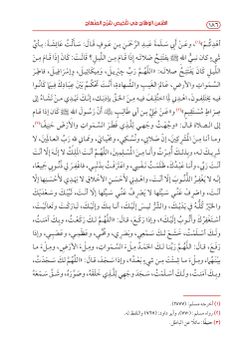 القبس الوهاج في تلخيص شرح المنهاج
١٨٦
أهديكم»(١)، وعن أبي سلمة عبد الرحمن بن عوف قال: سألت عائشة: بأي
شيء كان نبي الله ﷺ يفتتح صلاته إذا قام من الليل؟ قالت: كان إذا قام من
الليل كان يفتتح صلاته: «اللهم رب جبريل، وميكائيل، وإسرافيل، فاطر
السموات والأرض، عالم الغيب والشهادة، أنت تحكم بين عبادك فيما كانوا
فيه يختلفون، اهدني لما اختلف فيه من الحق بإذنك، إنك تهدي من تشاء إلى
صراط مستقيم» وعن علي بن أبي طالب، أن رسول الله ﷺ كان إذا قام
إلى الصلاة قال: «وجهت وجهي للذي فطر السموات والأرض حنيفا
وما أنا من المشركين، إن صلاتي، ونسكي، ومحياي، ومماتي لله رب العالمين، لا
شريك له، وبذلك أمرت وأنا من المسلمين، اللهم أنت الملك لا إله إلا أنت
أنت ربي، وأنا عبدك، ظلمت نفسي، واعترفت بذنبي، فاغفر لي ذنوبي جميعا،
إنه لا يغفر الذنوب إلا أنت، واهدني لأحسن الأخلاق لا يهدي لأحسنها إلا
أنت، واصرف عني سيئها لا يصرف عني سيئها إلا أنت، لبيك وسعديك
والخير كله في يديك، والشر ليس إليك، أنا بك وإليك، تباركت وتعاليت،
أستغفرك وأتوب إليك»، وإذا ركع، قال: «اللهم لك ركعت، وبك آمنت،
ولك أسلمت، خشع لك سمعي، وبصري، ومخي، وعظمي، وعصبي»، وإذا
رفع، قال: «اللهم ربنا لك الحمد ملء السموات، وملء الأرض، وملء ما
بينهما، وملء ما شئت من شيء بعد»، وإذا سجد، قال: «اللهم لك سجدت،
وبك آمنت، ولك أسلمت، سجد وجهي للذي خلقه، وصوره، وشق سمعه
(١) أخرجه مسلم:
(٢) رواه مسلم: وأبو داود:
(٣) حنيفا: مائلا عن الباطل